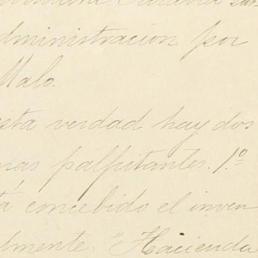 administracion por
Malo.
esta verdad hay dos
palpitantes. 1.º
tá concebido el inven
lmente. "Hacienda